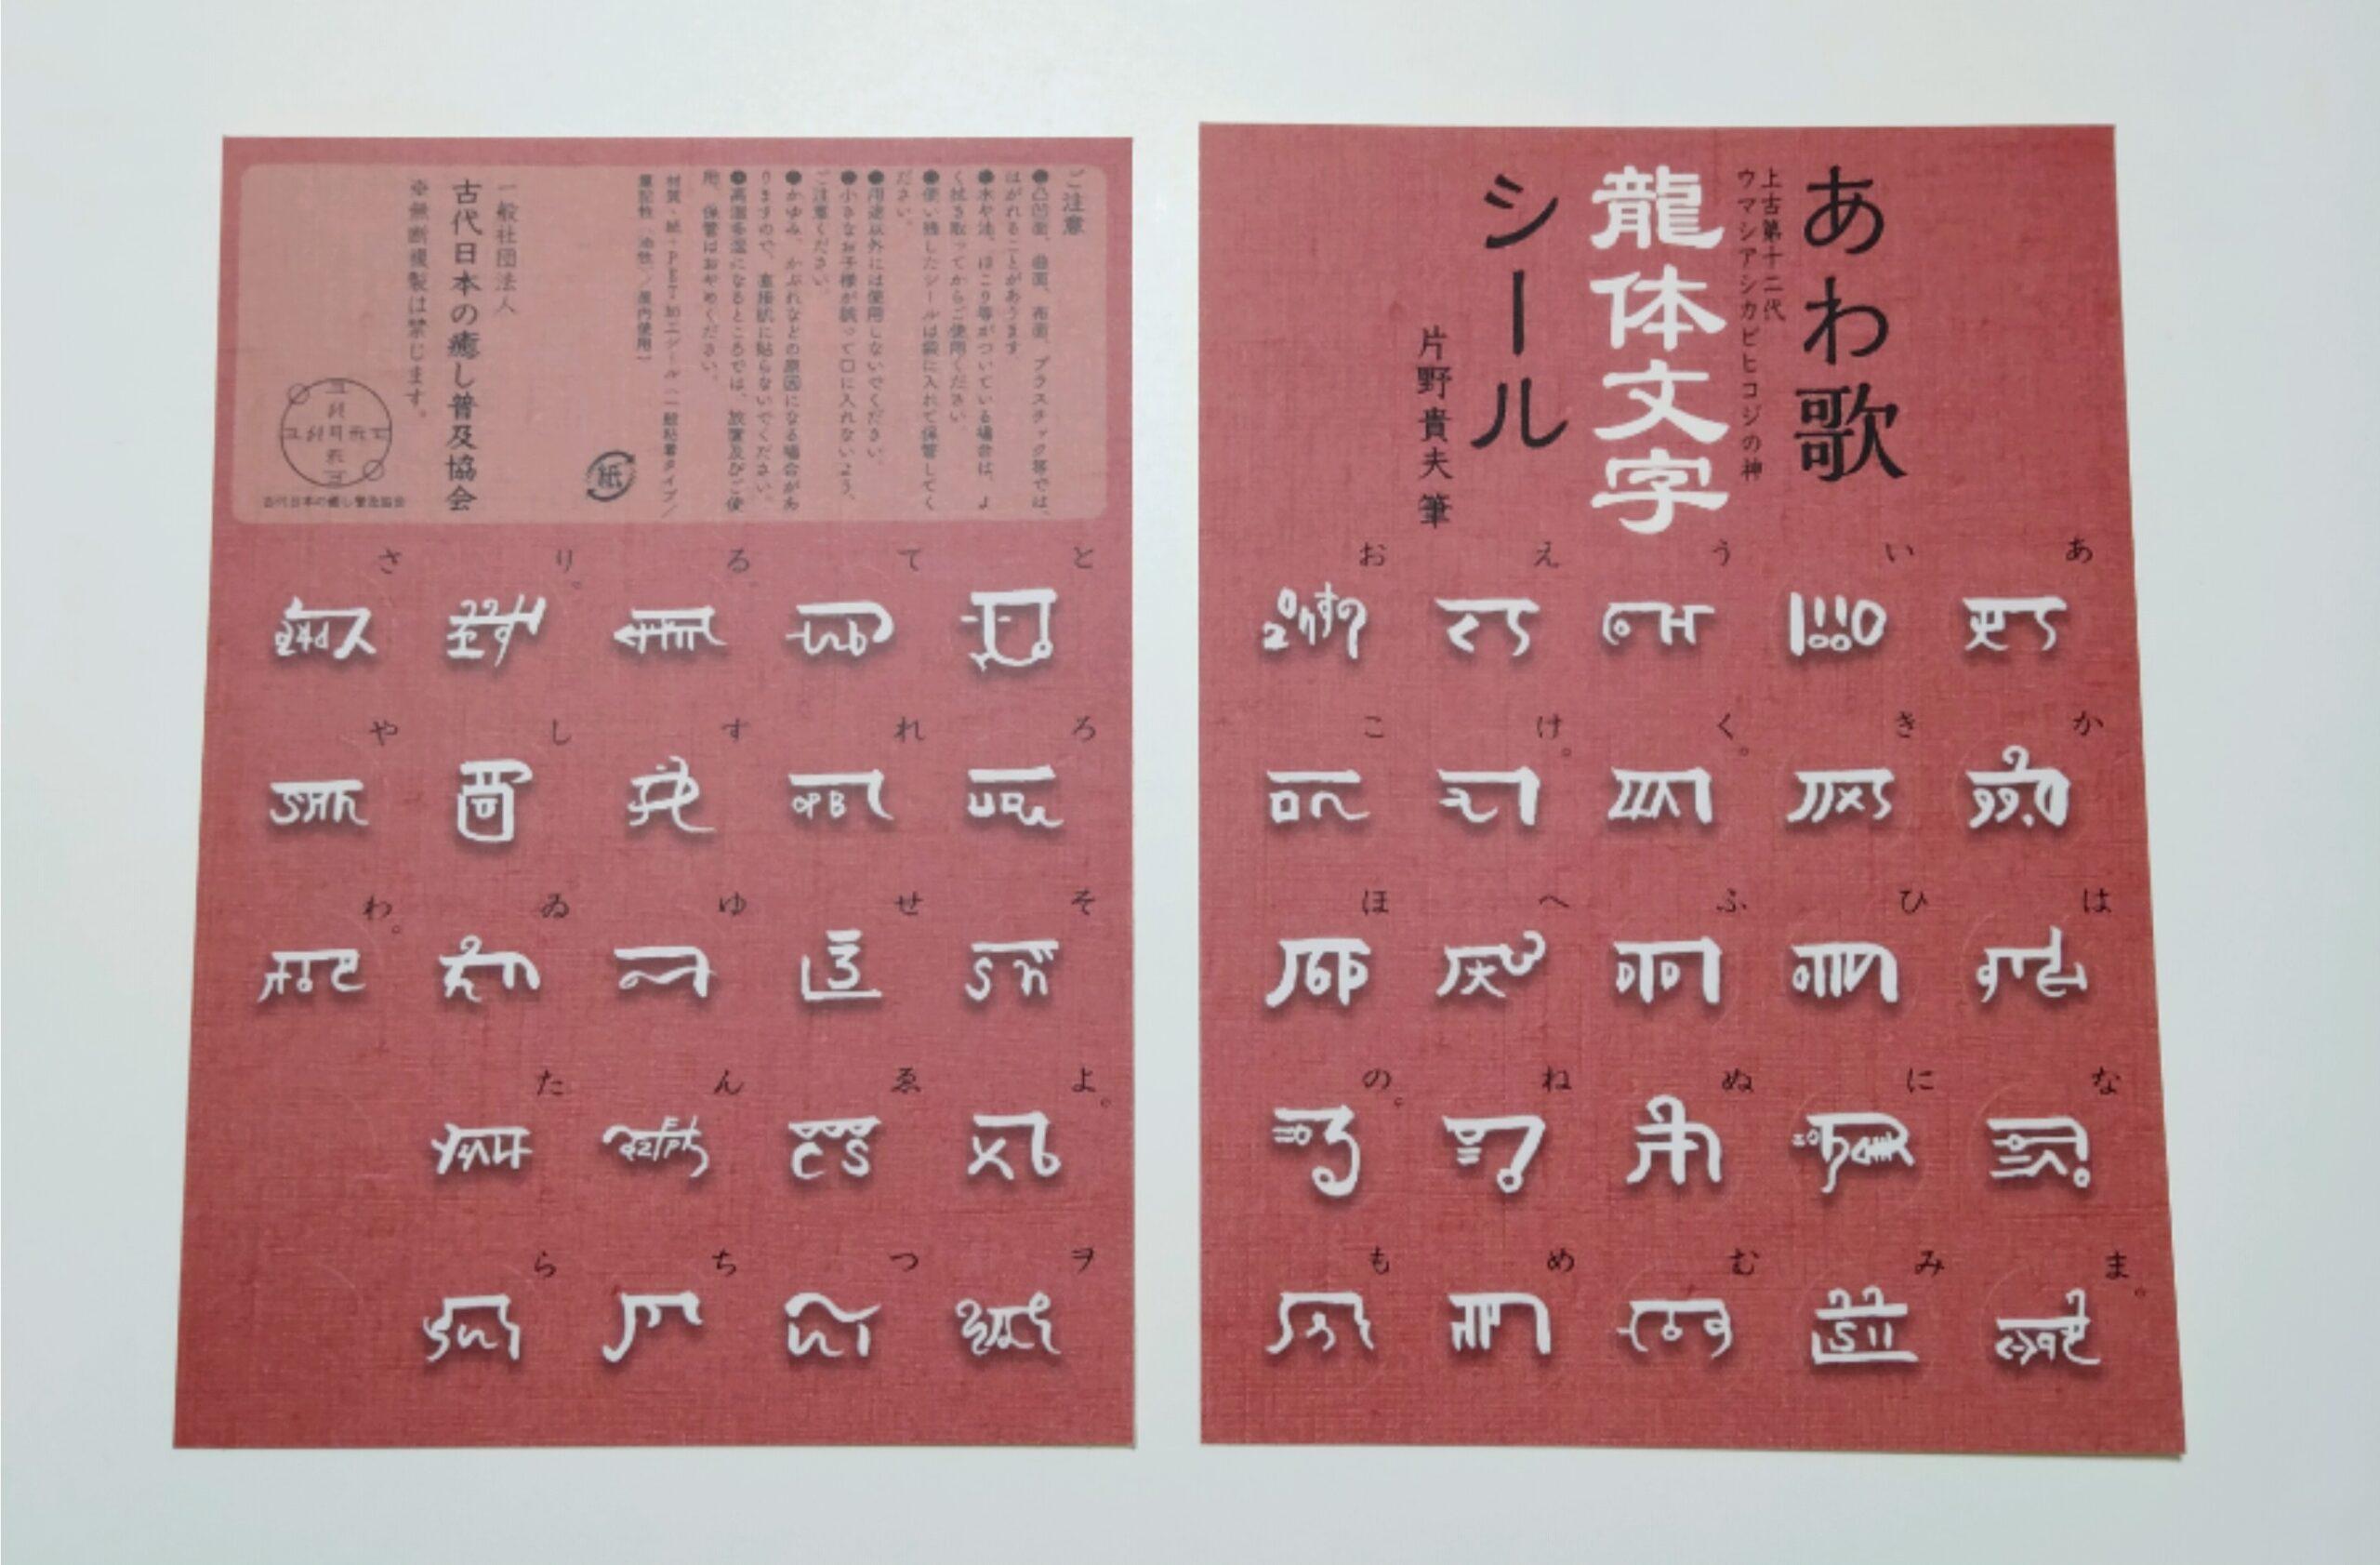 あわ歌
上古第十二代
ウマシアシカビヒコジの神
龍体文字
シール
片野貴夫 筆
あ い う え お
か き く。 け。 こ
は ひ ふ へ ほ
な に ぬ ね の。
ま。 み む め も
ご注意
●凸凹面、曲面、布面、プラスチック等では、
はがれることがあります
●水や油、ほこり等がついている場合は、よ
く拭き取ってからご使用ください。
●使い残したシールは袋に入れて保管してく
ださい。
●用途以外には使用しないでください。
●小さなお子様が誤って口に入れないよう、
ご注意ください。
●かゆみ、かぶれなどの原因になる場合があ
りますので、直接肌に貼らないでください。
●高温多湿になるところでは、放置及びご使
用、保管はおやめください。
材質:紙・PET加工シール(一般粘着タイプ/
筆記性:油性/屋内使用)
紙
一般社団法人
古代日本の癒し普及協会
※無断複製は禁じます。
古代日本の癒し普及協会
と て る。 り。 さ
ろ れ す し や
そ せ ゆ ゐ わ。
よ。 ゑ ん た
ヲ つ ち ら